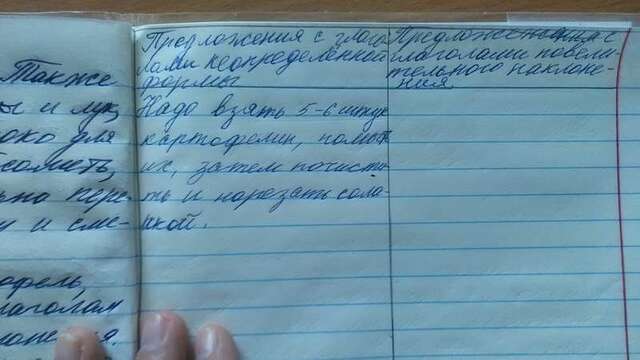 Также
ы и лук,
око для
сометь,
ьно пере-
у и сме-
офель,
лаголам
онения.
Предложения с глаго
лами неопределенной
формы
Надо взять 5-6 штук
картофелин, помыть
их, затем почисти
ть и нарезать соло-
мкой.
Предложения с
глаголами повели
тельного наклоне-
ния